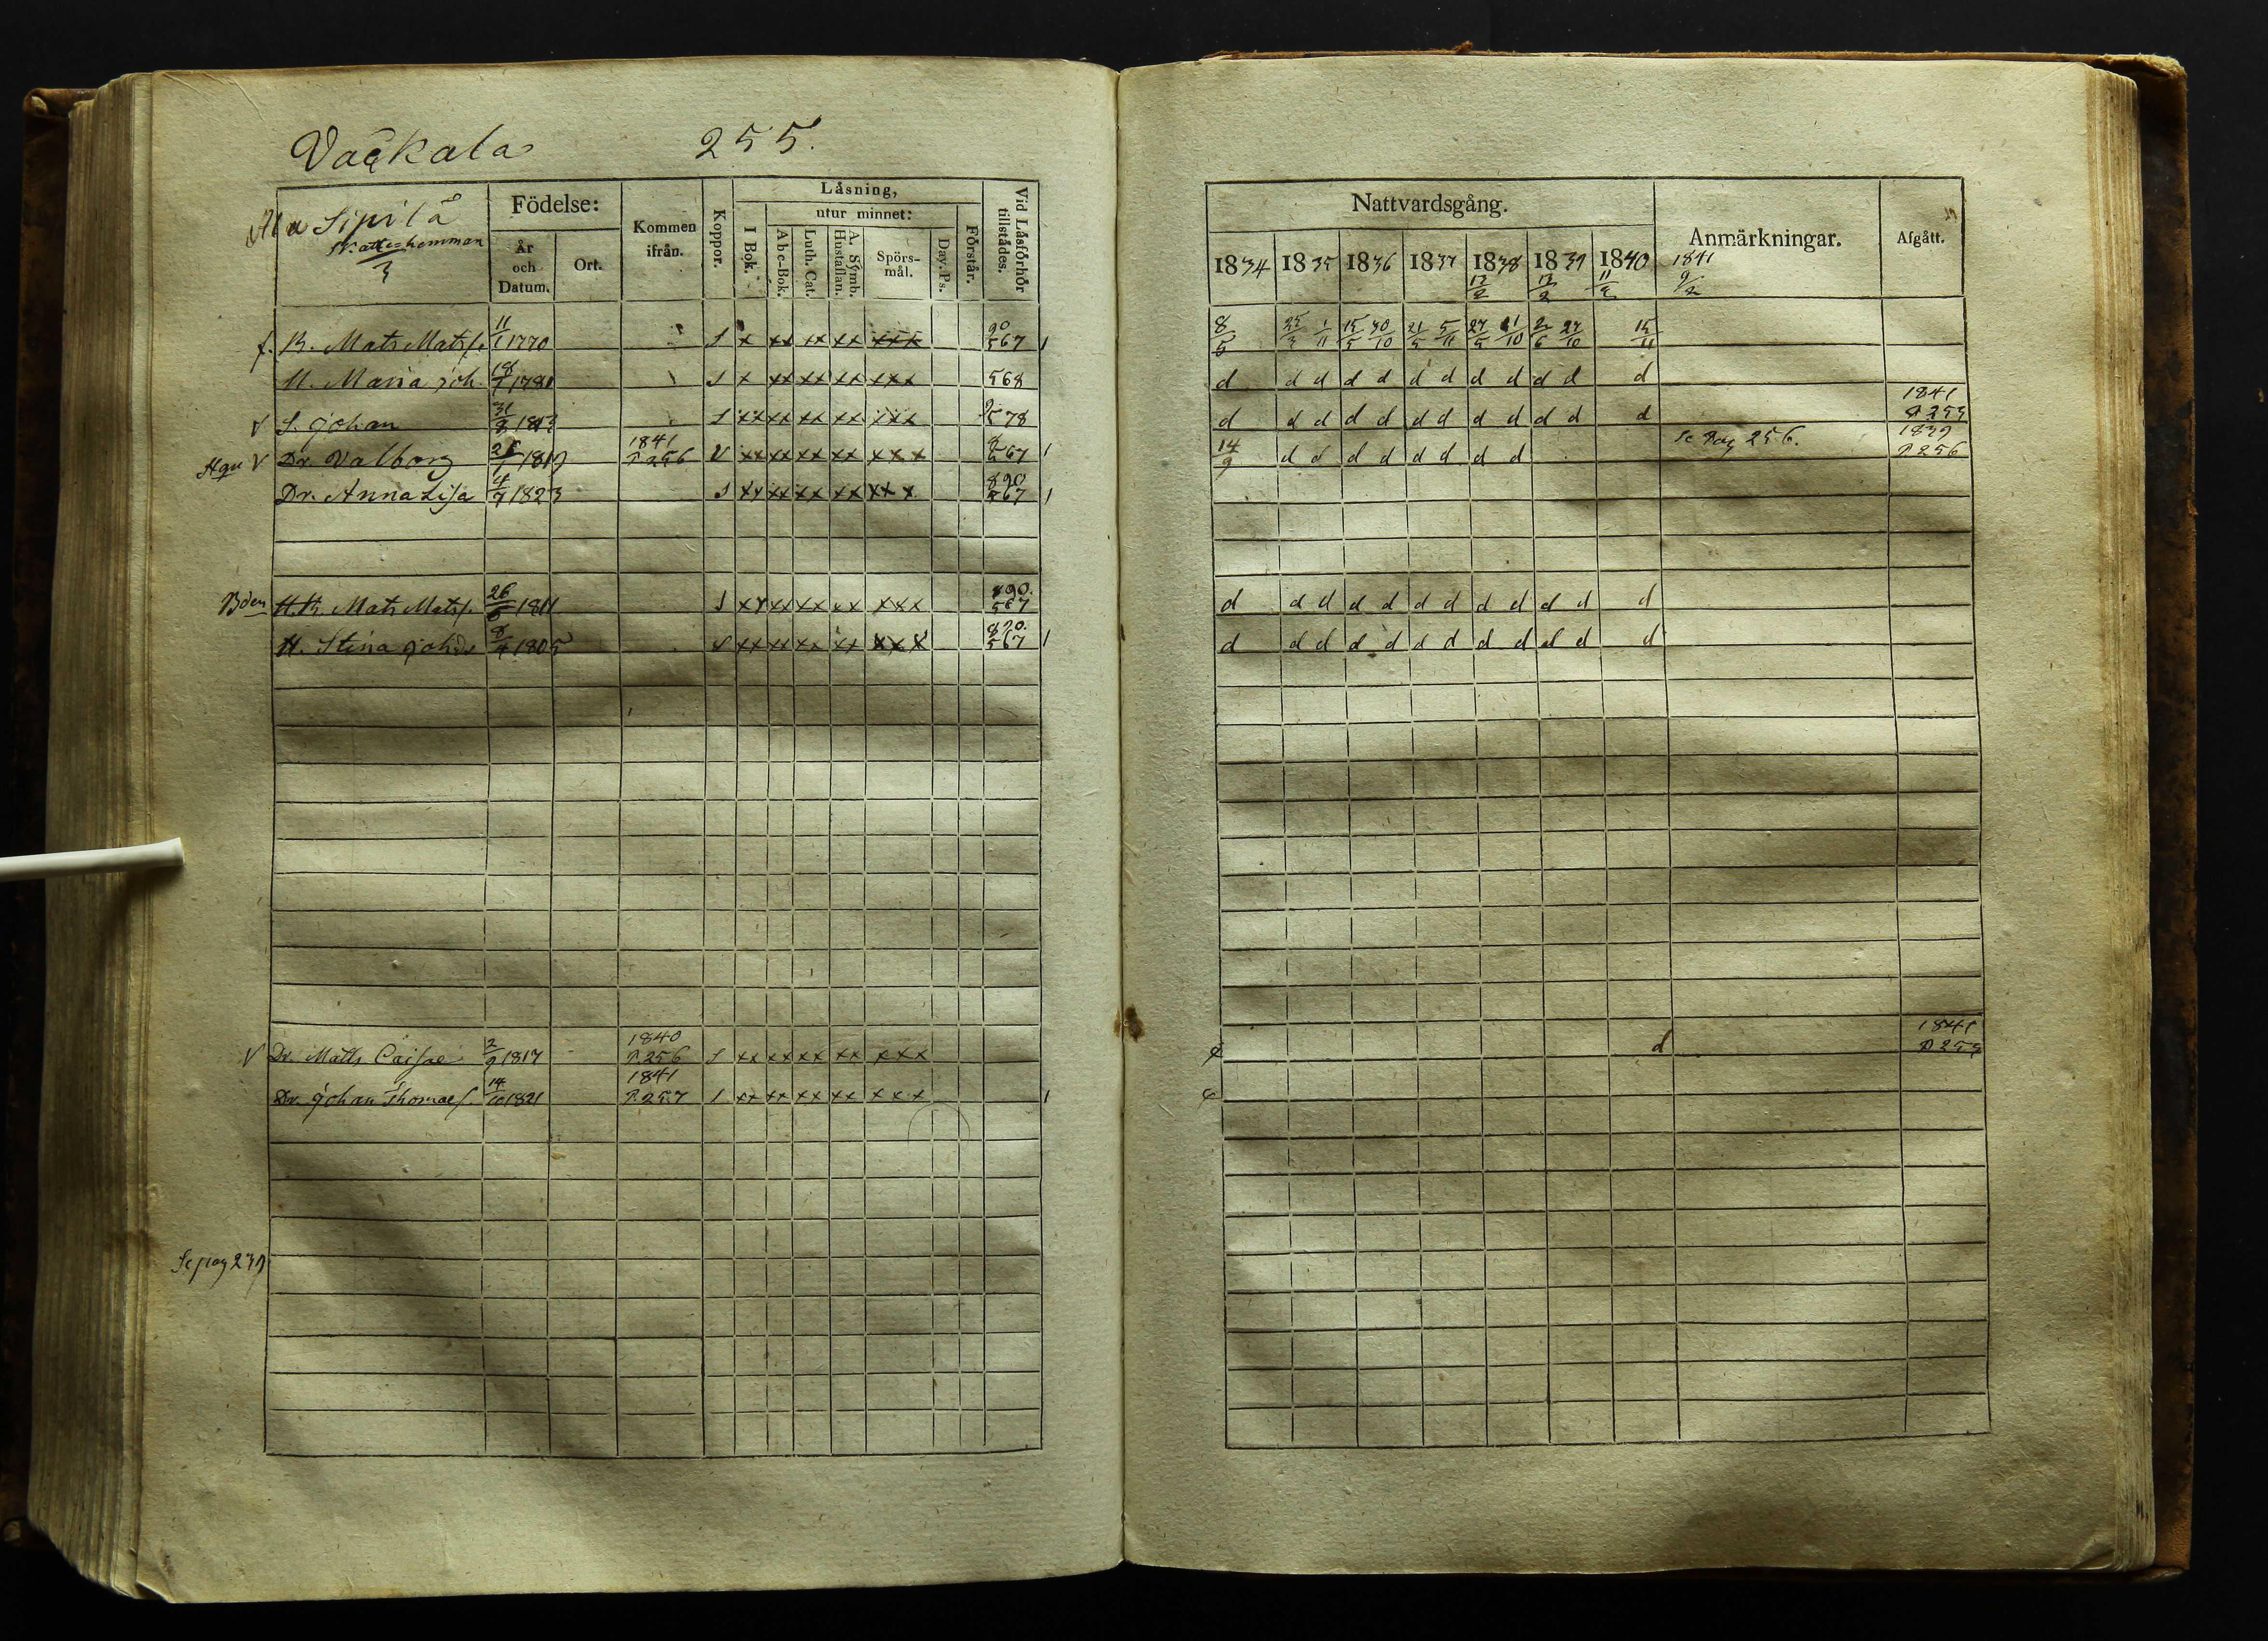 Vaekala 255.
Ala Sipilä
Skatte=hemman
3
Födelse:
År och Datum.
Ort.
Kommen ifrån.
Koppor.
Läsning,
I Bok.
utur minnet:
Abc-Bok.
Luth. Cat.
A. Symb. Hustaflan.
Spörs-mål.
Dav. Ps.
Förstår.
Vid Läsförhör tillstådes.
f. B. Mats Matss. 11/1 1770 S x xx xx xx xxx 90 567 1
H. Maria joh. 18/7 1781 S x xx xx xx xxx 568
V S. Johan 31/8 1813 S xx xx xx xx xxx 578
V Dr. Valborg 1819 1841 P 256 V xx xx xx xx xxx 8 567 1
Dr. Anna Lisa 4/7 1823 S xx xx xx xx xxx 890 567 1
Bden Mats Matss. 26/5 1811 S xx xx xx xx xxx 890. 567
H. Stina Johds 8/4 1805 S xx xx xx xx xxx 890. 567 1
V Dr. Matts Caisae 2/9 1817 1840 P. 256 S xx xx xx xx xxx
Dr. Johan Thomaes. 14/10 1821 1841 P. 257 S xx xx xx xx xxx 1
Se pag 239
Nattvardsgång.
Anmärkningar.
Afgått.
1834 1835 1836 1837 1838 1839 1840 1841
12/2 13/2 11/2 9/2
8/5 25/3 1/11 15/5 30/10 21/5 5/11 27/5 21/10 2/6 27/10 15/11
d d d d d d d d d d d d
d d d d d d d d d d d d 1841 P 255
14/9 d d d d d d d d Se Pag 256. 1839 P 256
d d d d d d d d d d d d
d d d d d d d d d d d d
d 1841 P 255